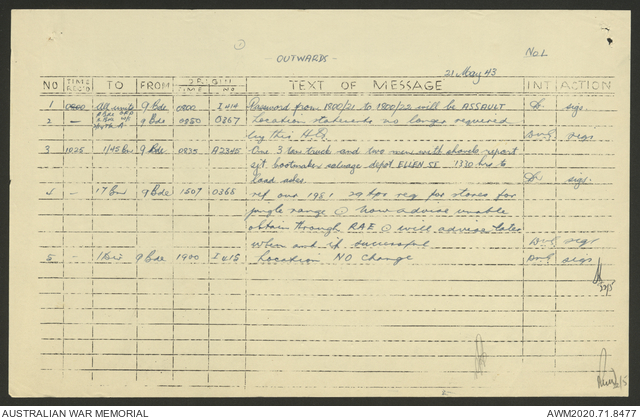 ①
OUTWARDS
No. 1
21 May 43
NO TIME TO FROM ORIGIN TEXT OF MESSAGE INT ACTION
TIME NO
1 0800 All units 9 Bde 0800 I 414 Password from 1800/21 to 1800/22 will be ASSAULT sigs.
2 - 9 Bde 0850 O367 Location statements no longer required
by this H.Q. sigs
3 1025 1/45 Bn 9 Bde 0835 A2345 One 3 ton truck and two men with shovels report
sjt bootmaker salvage depot ELLEN ST 1330 hrs to
load sigs.
4 - 17 Bn 9 Bde 1507 O368 ref our 1981 29 for stores for
jungle range @ how advise unable
obtain through RAE @ will advise later
when and if successful sigs
5 - 1 Div 9 Bde 1900 I 415 Location NO change sigs
AUSTRALIAN WAR MEMORIAL
AWM2020.71.8477